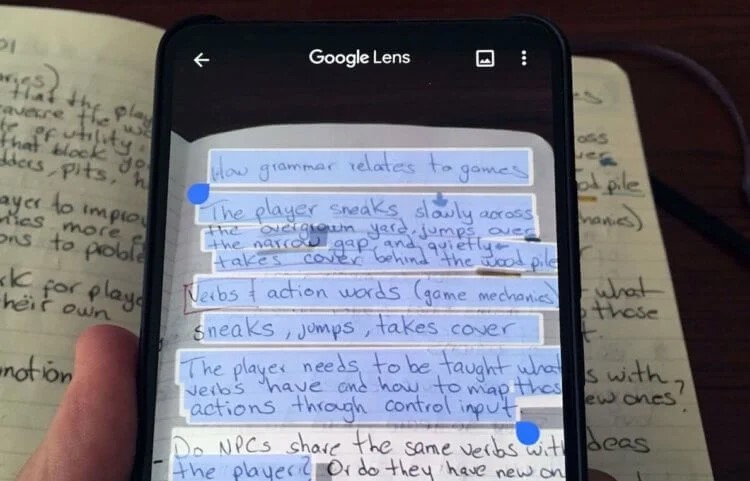 Google Lens
How grammar relates to games
The player sneaks slowly across
the overgrown yard, jumps over
the narrow gap and quietly
takes cover behind the wood pile
Verbs & action words (game mechanics)
sneaks, jumps, takes cover
The player needs to be taught what
verbs have and how to map thos
actions through control input.
Do NPCs share the same verbs with
the player? Or do they have new on
that the play
of utility
that block yo
dders, pits, h
ayer to improv
more
ons to proble
rk for playe
their own
notion
oss
ood pile
hanics)
what
those
s with
ew ones?
deas